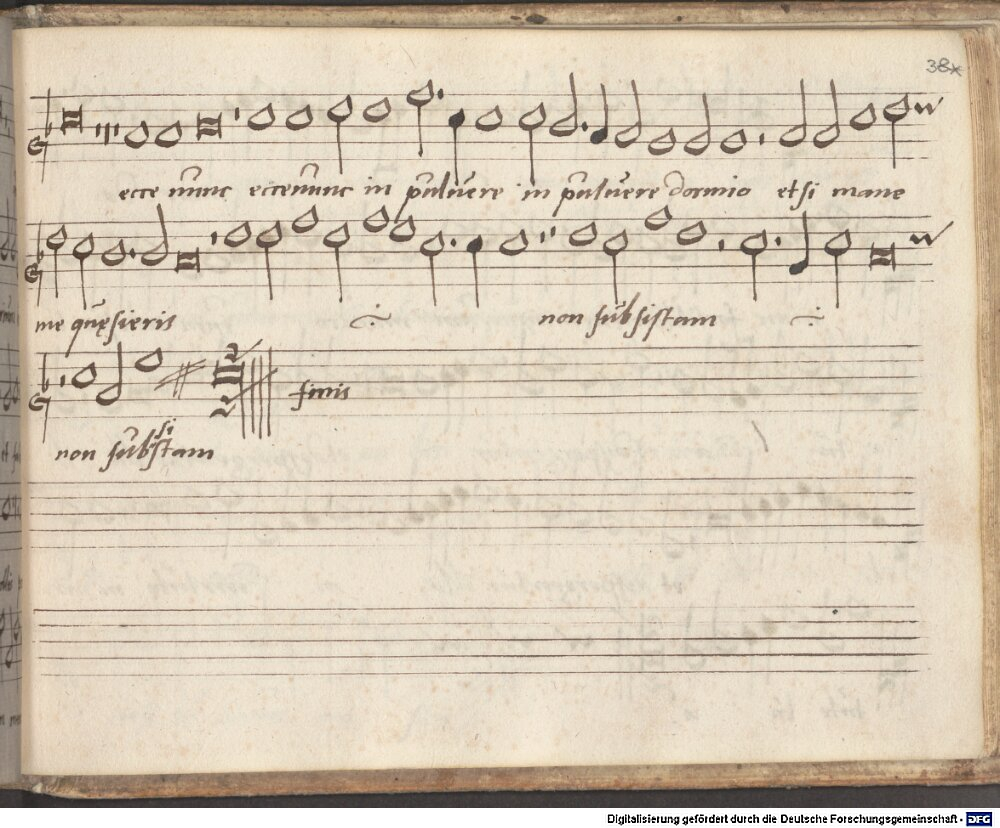 38
ecce nunc ecce nunc in puluere in puluere dormio et si mane
me quęsieris non subsistam
finis
si
non substam
Digitalisierung gefördert durch die Deutsche Forschungsgemeinschaft - DFG